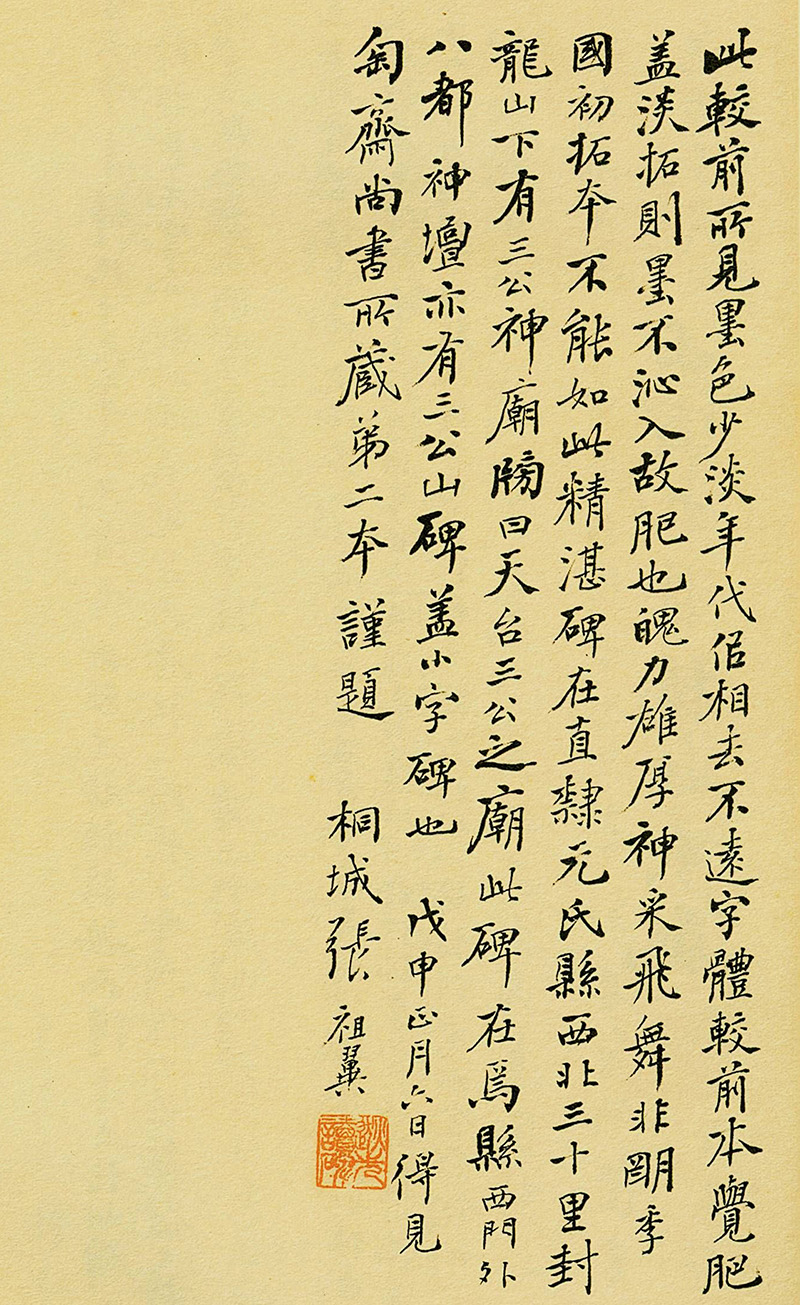 此較前所見墨色少淡年代侣相去不遠字體較前本覺肥
盖淡拓則墨不沁入故肥也魄力雄厚神采飛舞非明季
國初拓本不能如此精湛碑在直隸元氏縣西北三十里封
龍山下有三公神廟牓曰天台三公之廟此碑在焉縣西門外
八都神壇亦有三公山碑盖小字碑也 戊申正月六日得見
匋齋尚書所藏弟二本謹題 桐城張祖翼